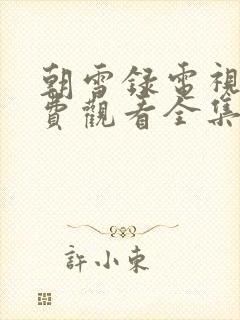 朝雪録電視
費觀看全集
許小東